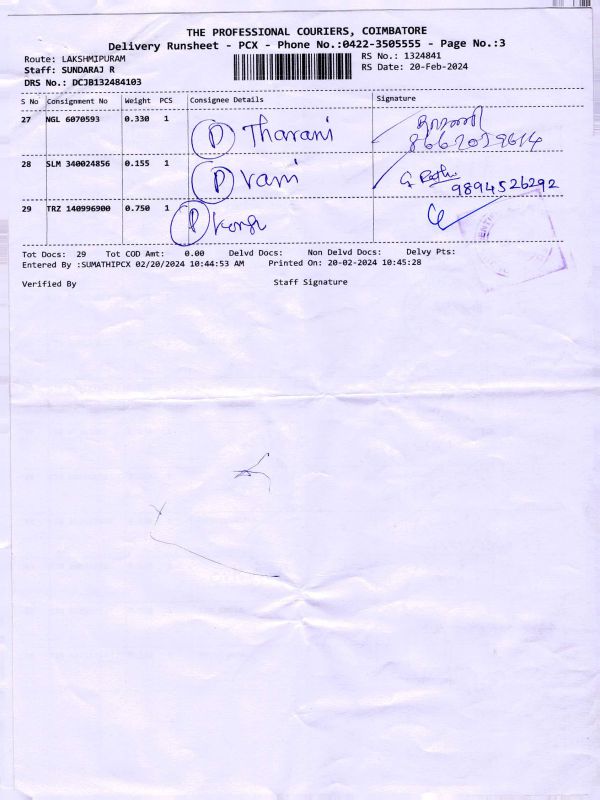 THE PROFESSIONAL COURIERS, COIMBATORE
Delivery Runsheet - PCX - Phone No.:0422-3505555 - Page No.:3
Route: LAKSHMIPURAM RS No.: 1324841
Staff: SUNDARAJ R RS Date: 20-Feb-2024
DRS No.: DCJB132484103
S No Consignment No Weight PCS Consignee Details Signature
27 NGL 6070593 0.330 1 (P) Tharani
28 SLM 340024856 0.155 1 (P) vani G. Rathi
9894526292
29 TRZ 140996900 0.750 1 (P)
Tot Docs: 29 Tot COD Amt: 0.00 Delvd Docs: Non Delvd Docs: Delvy Pts:
Entered By :SUMATHIPCX 02/20/2024 10:44:53 AM Printed On: 20-02-2024 10:45:28
Verified By Staff Signature